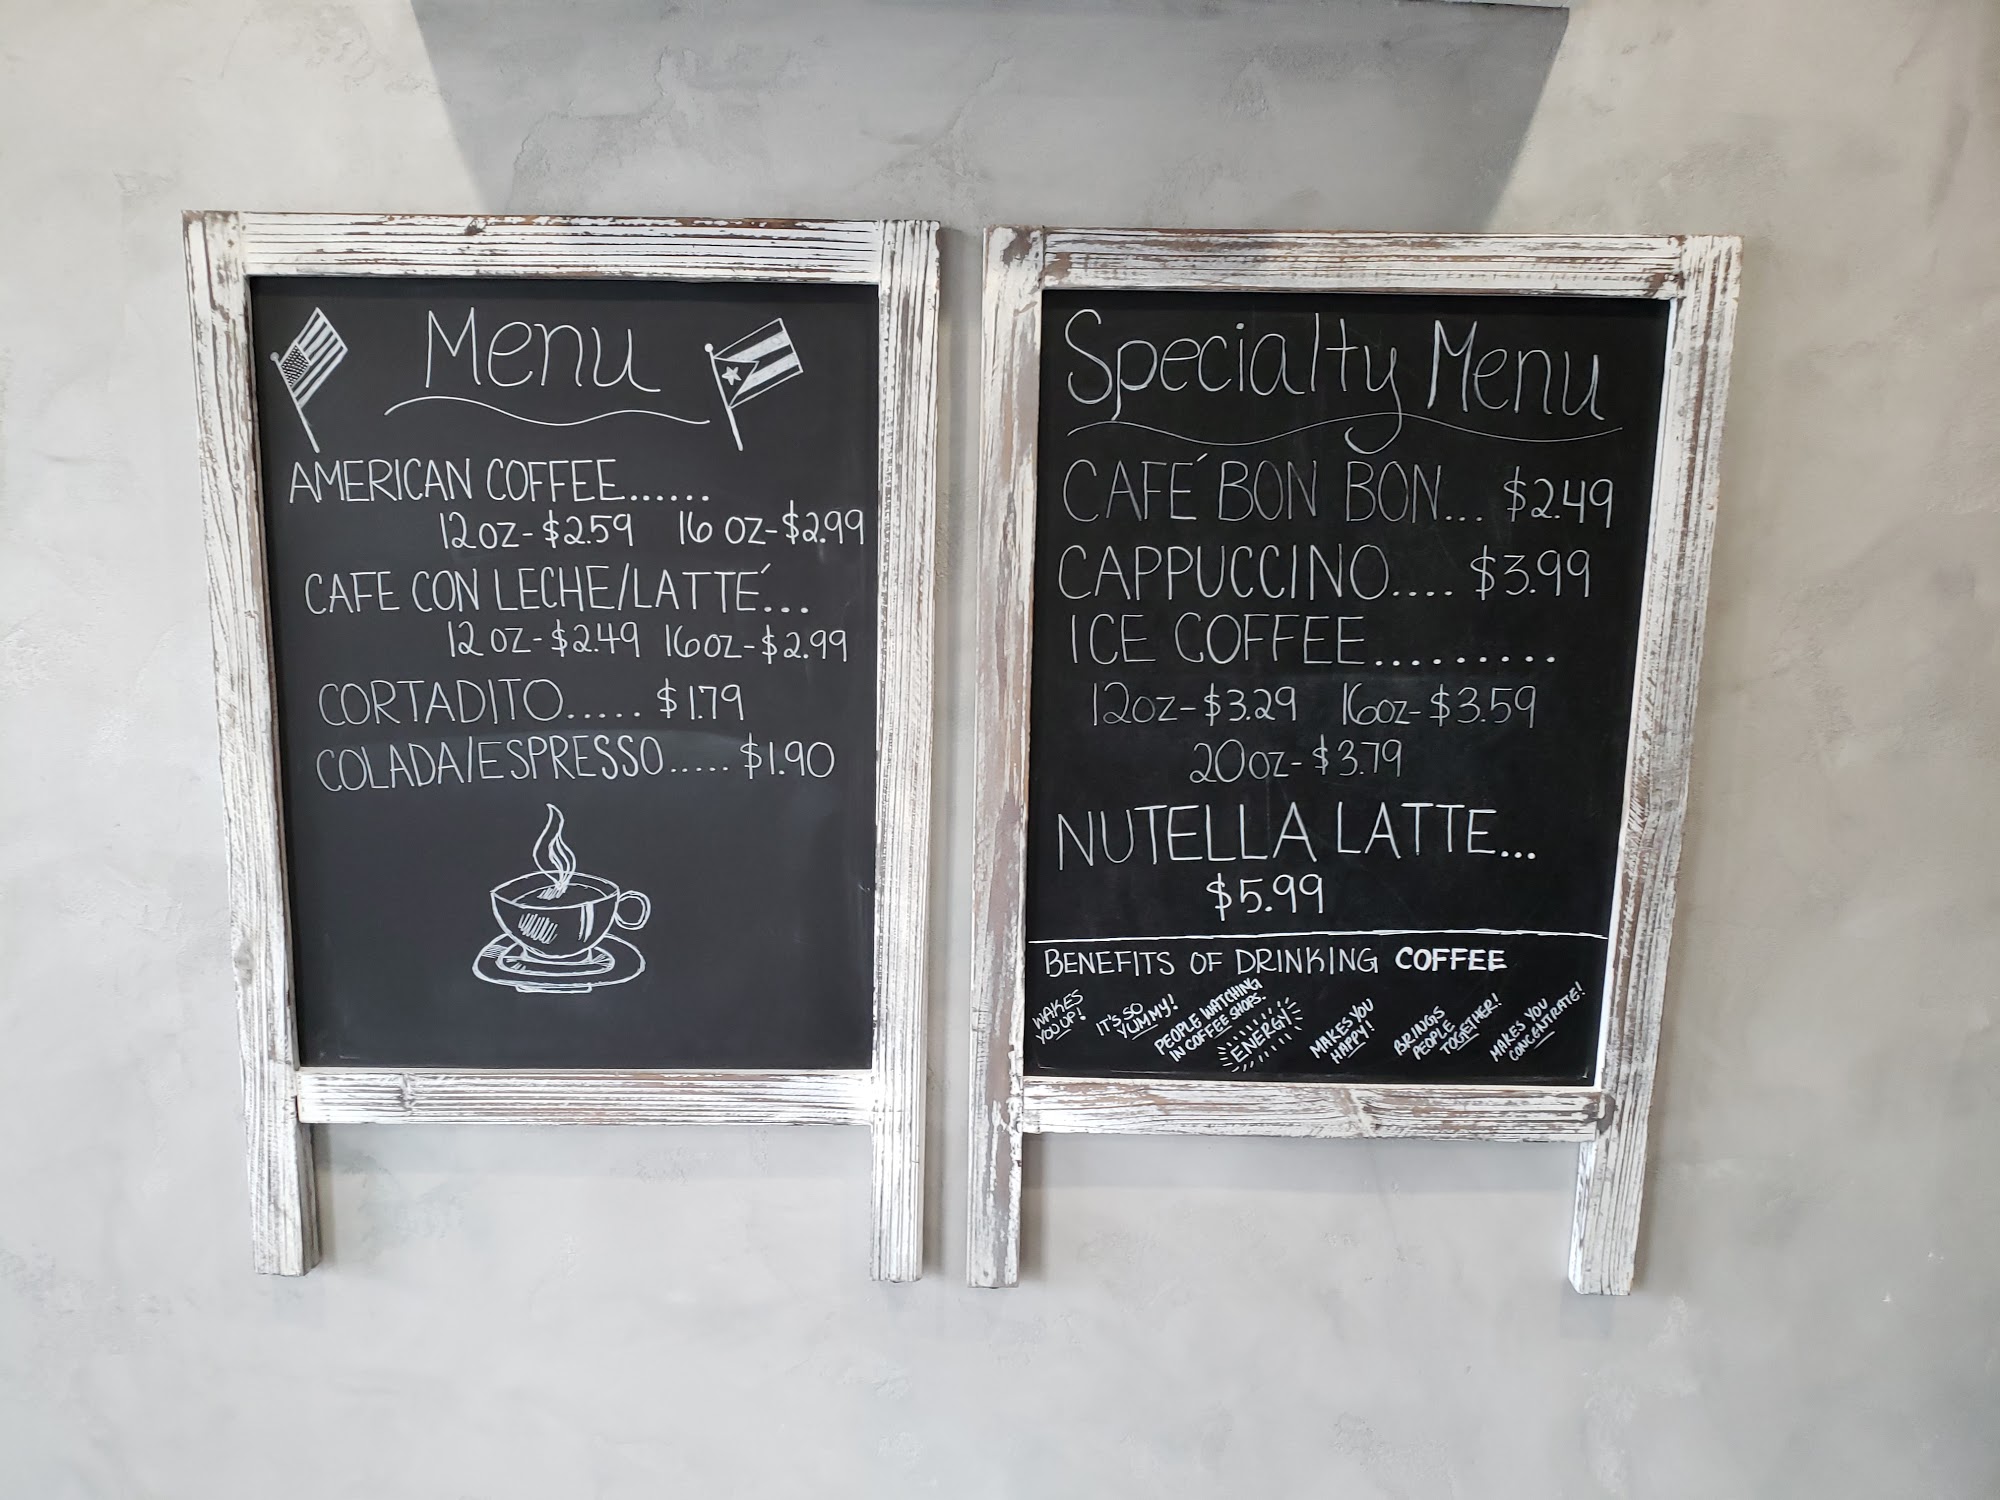 Menu
AMERICAN COFFEE......
12oz-$2.59 16 oz-$2.99
CAFE CON LECHE/LATTÉ...
12 oz-$2.49 16oz-$2.99
CORTADITO..... $1.79
COLADA/ESPRESSO..... $1.90
Specialty Menu
CAFÉ BON BON... $2.49
CAPPUCCINO.... $3.99
ICE COFFEE..........
12oz-$3.29 16oz-$3.59
20oz-$3.79
NUTELLA LATTE...
$5.99
BENEFITS OF DRINKING COFFEE
WAKES
YOU UP!
IT'S SO
YUMMY!
PEOPLE WATCHING
IN COFFEE SHOPS.
ENERGY
MAKES YOU
HAPPY!
BRINGS
PEOPLE
TOGETHER!
MAKES YOU
CONCENTRATE!